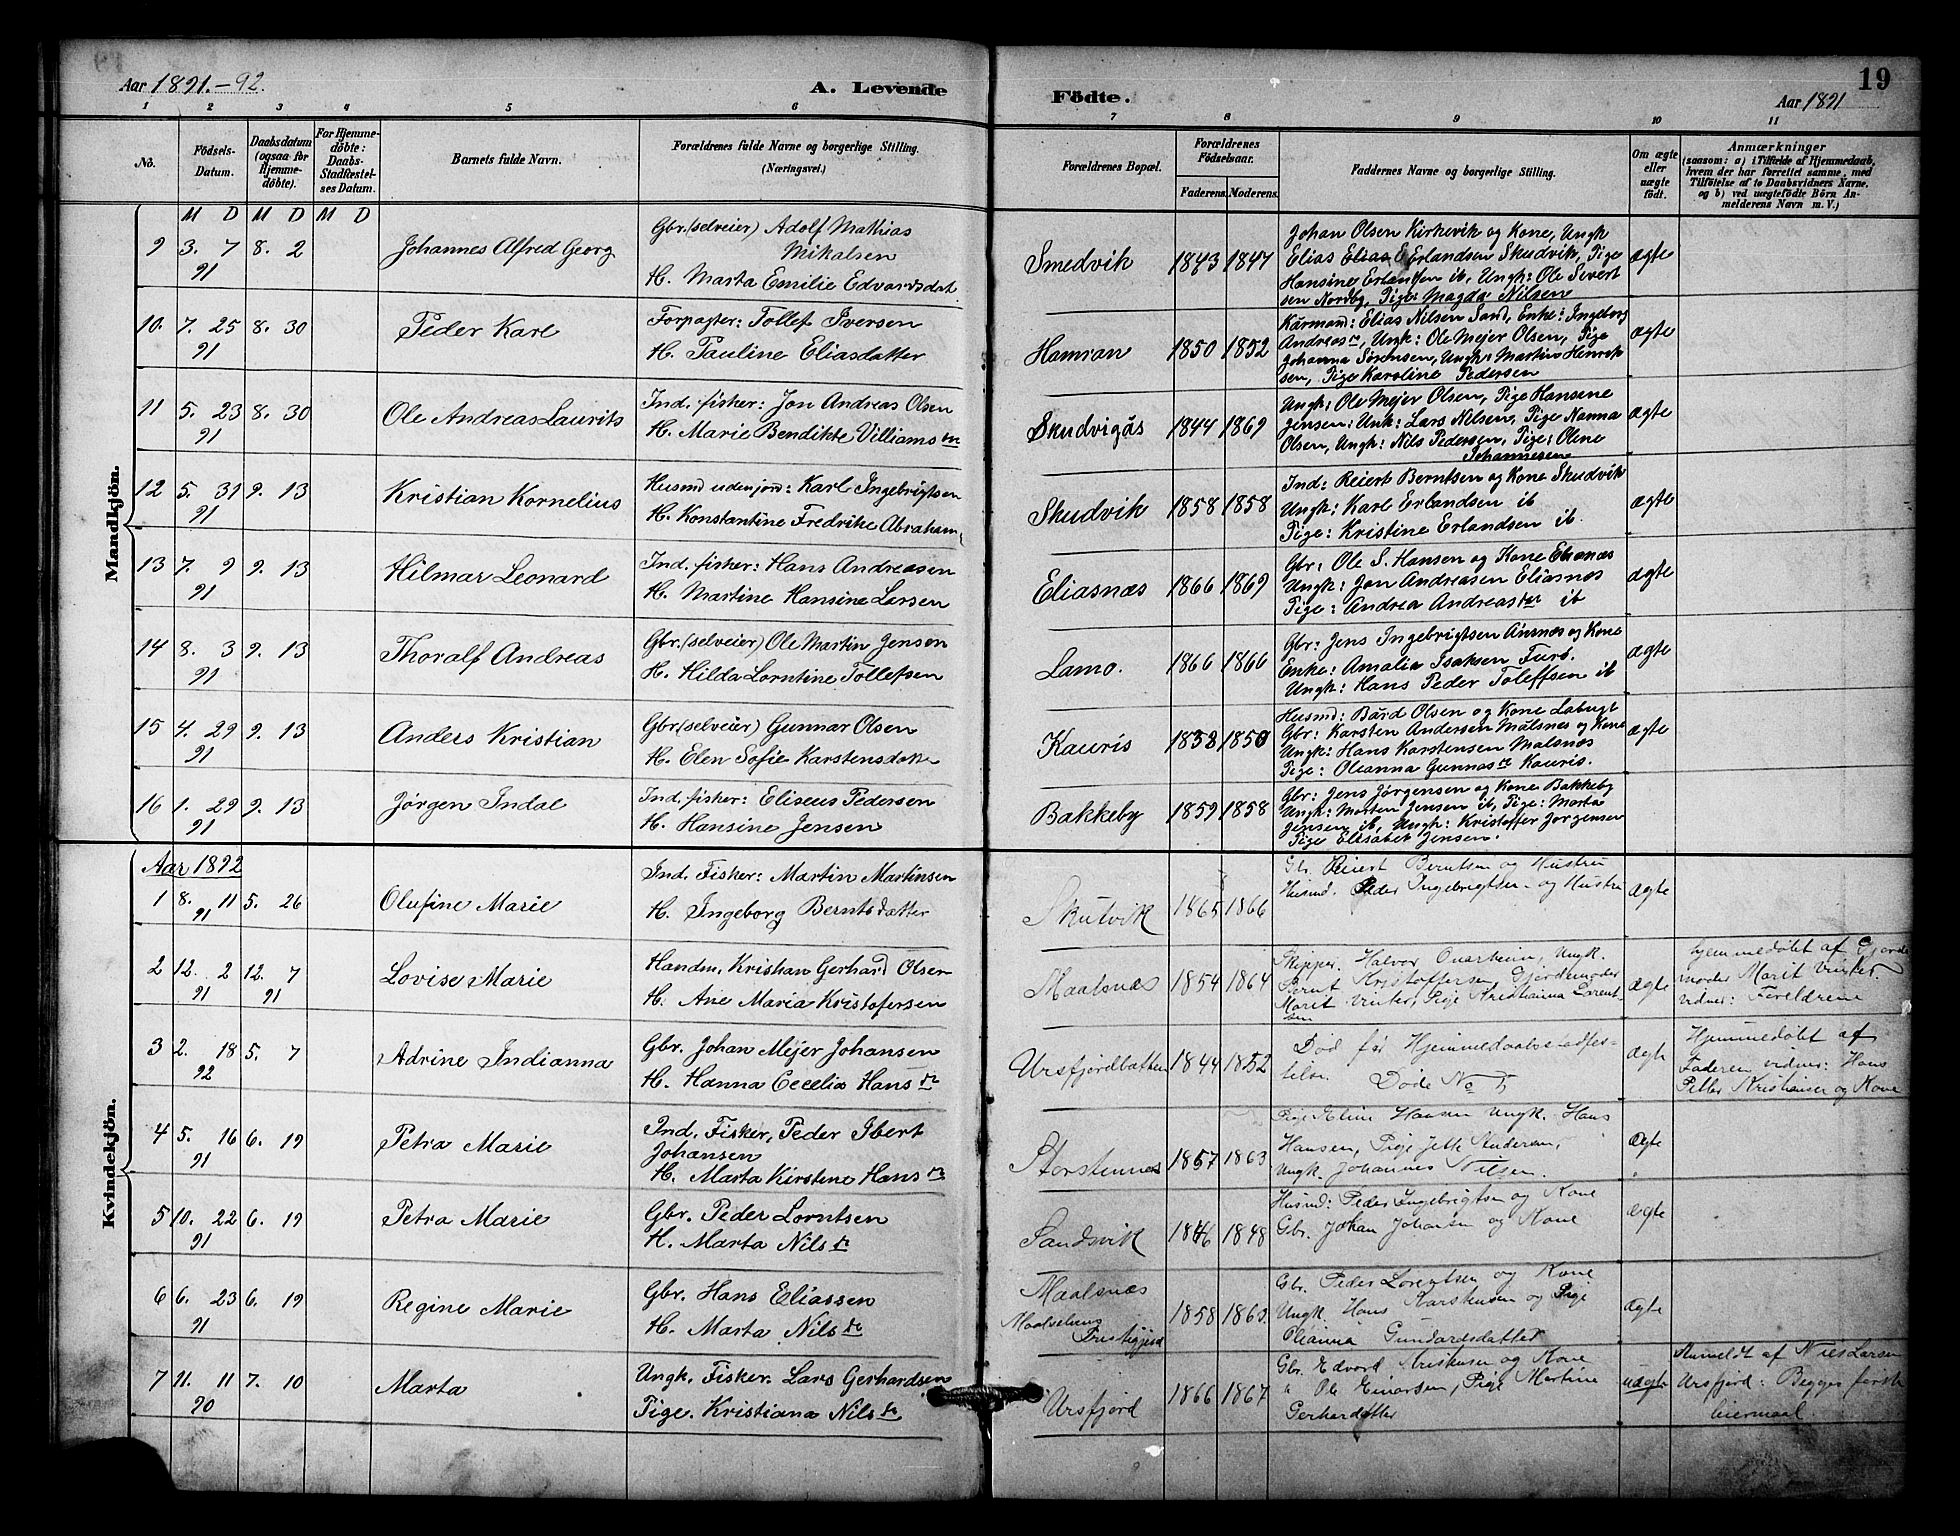 Aar 1891.-92.
A. Levende
Födte.
19
Aar 1891
1 2 3 4 5 6 7 8 9 10 11
No.
Födsels-Datum.
Daabsdatum (ogsaa for Hjemmedöbte).
For Hjemmedöbte: Daabs-Stadfæstelses Datum.
Barnets fulde Navn.
Forældrenes fulde Navne og borgerlige Stilling. (Næringsvei.)
Forældrenes Bopæl.
Forældrenes Födselsaar.
Faderens. Moderens.
Faddernes Navne og borgerlige Stilling.
Om ægte eller uægte födt.
Anmærkninger
(saasom: a) i Tilfælde af Hjemmedaab, hvem der har forrettet samme, med Tilföielse af to Daabsvidners Navne. og b) ved uægtefödte Börn Anmelderens Navn m. V.)
M D M D M D
Mandkjön.
9 3. 7 91 8. 2 Johannes Alfred Georg
Gbr. (selveier) Adolf Mathias
Mikalsen
H. Marta Emilie Edvardsdat.
Smedvik 1843 1847
Johan Olsen Kirkevik og Kone, Ungk
Elias Elias E Erlandsen Skudvik, Pige
Hansine Erlandsen ib, Ungk: Ole Sivert
sen Nordby, Pige: Magda Nilsen
ægte
10. 7. 25 91 8. 30 Peder Karl
Forpagter: Tollef Iversen
H. Pauline Eliasdatter
Hamran 1850 1852
Kårmand: Elias Nilsen Sand, Enke: Ingeborg
Andreasdr, Ungk: Ole Mejer Olsen, Pige
Johanna Sörensen, Ungk: Martin Henrik
sen, Pige Karoline Pedersen
ægte
11 5. 23 91 8. 30 Ole Andreas Laurits
Ind. fisker: Jon Andreas Olsen
H. Marie Bendikte Villiams dr
Skudvigås 1844 1869
Ungk: Ole Mejer Olsen, Pige Hansene
Jensen: Unk: Lars Nilsen, Pige Nanna
Olsen, Ungk: Nils Pedersen, Pige: Oline
Johannesen
ægte
12 5. 31 91 9. 13 Kristian Kornelius
Husmd uden jord: Karl Ingebrigtsen
H. Konstantine Fredrike Abraham
Skudvik 1858 1858
Ind: Reiert Berntsen og Kone Skudvik
Ungk: Karl Erlandsen ib
Pige: Kristine Erlandsen ib.
ægte
13 7. 9 91 9. 13 Hilmar Leonard
Ind. fisker: Hans Andreasen
H. Martine Hansine Larsen
Eliasnæs 1866 1869
Gbr: Ole S. Hansen og Kone Eliasnæs
Ungk: Jon Andreasen Eliasnæs
Pige: Andrea Andreasdtr ib
ægte
14 8. 3 91 9. 13 Thoralf Andreas
Gbr. (selveier) Ole Martin Jensen
H. Hilda Lorntine Tollefsen
Lamo. 1866 1866
Gbr: Jens Ingebrigtsen Ansnæs og Kone
Enke: Amalia Isaksen Furö.
Ungk: Hans Peder Toleffsen ib
ægte
15 4. 29 91 9. 13 Anders Kristian
Gbr. (selveier) Gunnar Olsen
H. Elen Sofie Karstensdatter
Kauris 1838 1850
Husmd: Bård Olsen og Kone Labugt
Gbr: Karsten Andersen Målsnes og Kone
Ungk: Hans Karstensen Målsnæs
Pige: Oleanna Gunnasdr Kauris.
ægte
16 1. 29 91 9. 13 Jørgen Indal
Ind. fisker: Eliseus Pedersen
H. Hansine Jensen
Bakkeby 1859 1858
Gbr: Jens Jørgensen og Kone Bakkeby
Ungk: Morten Jensen ib, Pige: Marta
Jensen ib, Ungk: Kristoffer Jørgensen
Pige Elisabet Jensen.
ægte
Kvindekjön.
Aar 1892
1 8. 11 91 5. 26 Olufine Marie
Ind. Fisker: Martin Martinsen
H. Ingeborg Berntsdatter
Skutvik 1865 1866
Gb. Reiert Berntsen og Hustru
Husmd. Peder Ingebrigtsen og Hustru
ægte
2 12. 2 91 12. 7 91 Lovise Marie
Handm. Kristian Gerhard Olsen
H. Ane Maria Kristofersen
Maalsnæs 1854 1864
Skipper. Halvor Qvarheim, Ungk.
Bernt Kristoffersen, Gjordemoder
Marit Vinter, Pige Kristianna Lorent
sen
ægte
hjemmedøbt af Gjorde
moder Marit Vinter
vidner: Foreldrene
3 2. 18 92 5. 7 Adrine Indianna
Gbr. Johan Mejer Johansen
H. Hanna Cecelia Hans dr
Ursfjordbotten 1844 1852
Død før Hjemmedaabsstadfes-
telse. Døde No 5
ægte
Hjemmedøbt af
Faderen vidner: Hans
Petter Kristiansen og Kone
4 5. 16 91 6. 19 Petra Marie
Ind. Fisker, Peder Ibert
Johansen
H. Marta Kirstine Hans dr
Storsteinnes 1857 1863
Pige Eline Hansen Ungk. Hans
Hansen, Pige Jette Andersen,
Ungk. Johannes Nilsen.
Ægte
5 10. 22 91 6. 19 Petra Marie
Gbr. Peder Lorntsen
H. Marta Nils dr
Sandsvik 1846 1848
Husmd: Peder Ingebrigtsen og Kone
Gbr. Johan Johansen og Kone
ægte
6 6. 23 91 6. 19 Regine Marie
Gbr. Hans Eliassen
H. Marta Nils dr
Maalsnæs
1858 1863.
Gbr. Peder Lorentsen og Kone
Ungk. Hans Karstensen og Pige
Oleanna Gundarsdatter
Ægte
7 11. 11 90 7. 10 Marta
Ungk. Fisker. Lars Gerhardsen
Pige. Kristiana Nils dr
Ursfjord 1866 1867
Gbr. Edvard Kristiansen og Kone
" Ole Einarsen, Pige Martine
Gerhardatter
uægte
Anmeldt af Niels Larsen
Ursfjord: Begges første
leiermaal.